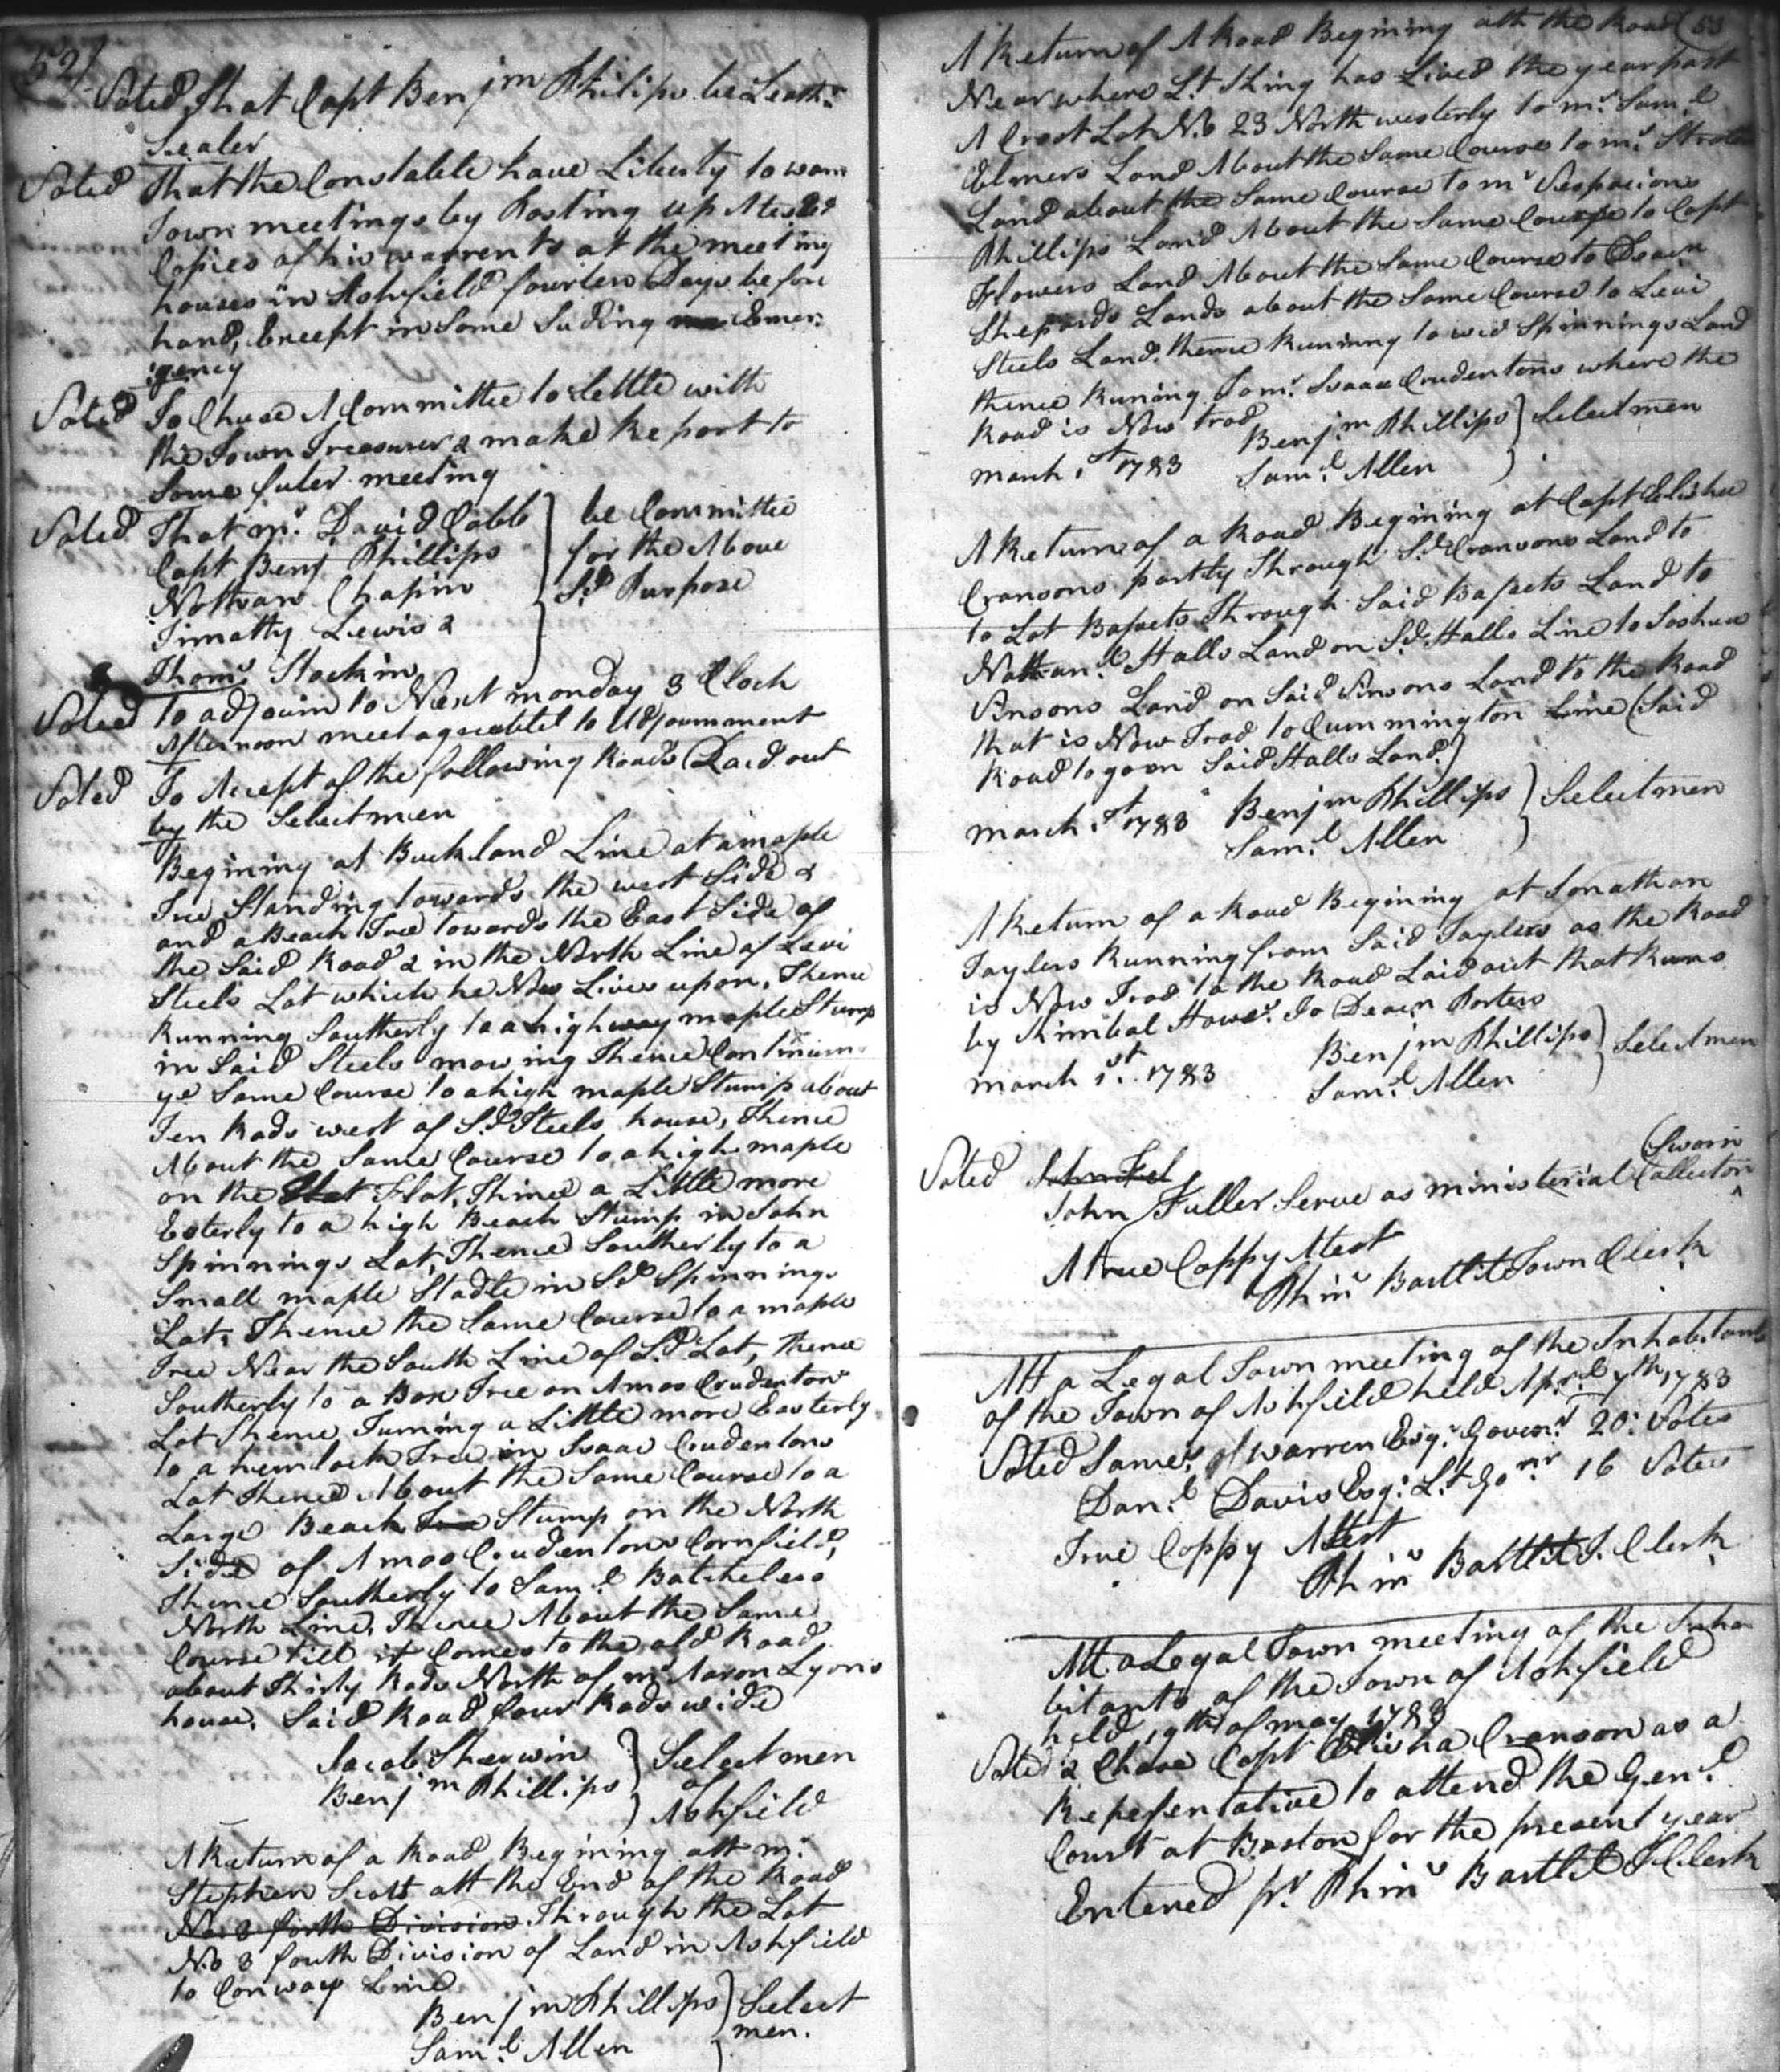 52)
Voted That Capt Benjm Philips be Leathr
Sealer
Voted That the Constable have Liberty to warn
Town meetings by Posting up Atested
Copies of his warrents at the meeting
houses in Ashfield fourten Days before
hand, Except in Some Suding Emer:
:gency
Voted To Chuse A Committee to Settle with
the Town Treasurer & make Report to
Some futer meeting
Voted That mr. David Cobb } be Committee
Capt Benj Phillips } for the Above
Nathan Chapin } Sd. Purpose
Timothy Lewis &
Thoms Stockin
Voted to adjourn to Next monday 3 Clock
Afternoon meet agreeable to Adjournment
Voted To Accept of the following Roads Laid out
by the Selectmen
Begining at Buckland Line at a maple
Tree Standing towards the west Side &
and a Beach Tree towards the East Side of
the Said Road & in the North Line of Levi
Steels Lot which he Now Lives upon, Thence
Running Southerly to a high way maple Stump
in Said Steels mowing Thence Continuing
ye Same Course to a high maple Stump about
Ten Rods west of Sd. Steels house, Thence
About the Same Course to a high maple
on the Flat, Thince a Little more
Esterly to a high Beach Stump in John
Spinnings Lot, Thence Southerly to a
Small maple Stadle in Sd Spinnings
Lot, Thence the Same Course to a maple
Tree Near the South Line of Sd. Lot, thence
Southerly to a Box Tree on Amos Crudentons
Lot Thence Turning a Little more Easterly
to a hemlock Tree in Isaac Crudentons
Lot Thence About the Same Course to a
Large Beach Tree Stump on the North
Side of Amos Crudentons Cornfield,
Thence Southerly to Saml. Batchelers
North Line, Thence About the Same
Course till it Comes to the old Road
about Thirty Rods North of mr Aaron Lyons
house, Said Road four Rods wide
Jacob Sherwin } Selectmen
Benjm Phillips } of
Ashfield
A Return of a Road Begining att mr.
Stephen Scott att the End of the Road
No. 3 forth Division Through the Lot
No 3 fouth Division of Land in Ashfield
to Conway Line
Benjm Phillips } Select
Saml. Allen } men.
A Return of A Road Begining att the Road (53
Near where Lt King has Lived the year past
A Crost Lot No 23 North westerly to mr. Saml
Elmers Land About the Same Course to mr.
Land about the Same Course to mr Vespacions
Phillips Land About the Same Course to Capt
Flowers Land About the Same Course to Deacn
Shepards Lands about the Same Course to Levi
Steels Land. thence Running to wid Spinnings Land
thence Runing To mr. Isaac Crudentons where the
Road is Now trod
Benjm Phillips } Selectmen
march 1st 1783 Saml. Allen }
A Return of a Road Begining at Capt Elisha
Cransons partly Through Sd. Cransons Land to
to Lot Bassets Through Said Bassets Land to
Nathanl. Halls Land on Sd. Halls Line to Joshua
Vinsons Land on Said Vinsons Land to the Road
that is Now Trod to Cummington Line (Said
Road to go on Said Halls Land)
march 1st 1783 Benjm Phillips } Selectmen
Saml. Allen }
A Return of a Road Begining at Jonathan
Taylers Running from Said Taylers as the Road
is Now Trod to the Road Laid out that Runs
by Kimbal Hows. To Deacn Porters
Benjm Phillips } Selectmen
march 1st. 1783 Saml. Allen }
Voted
(Sworn
John Fuller Serve as ministerial Collector
A true Coppy Atest
Phins Bartlit Town Clerk
Att a Legal Town meeting of the Inhabitants
of the Town of Ashfield held Aprel 7th 1783
Voted James Warren Esqr. Govenr 20: Votes
Danl. Davis Esq: Lt Gonr 16 Votes
True Coppy Attest
Phins Bartlit T. Clerk
Att a Legal Town meeting of the Inha
bitants of the Town of Ashfield
held 19th of may 1783
Voted & Chose Capt Elisha Cranson as a
Repesentative to attend the Genl.
Court at Boston for the present year
Entered pr. Phins Bartlit T Clerk